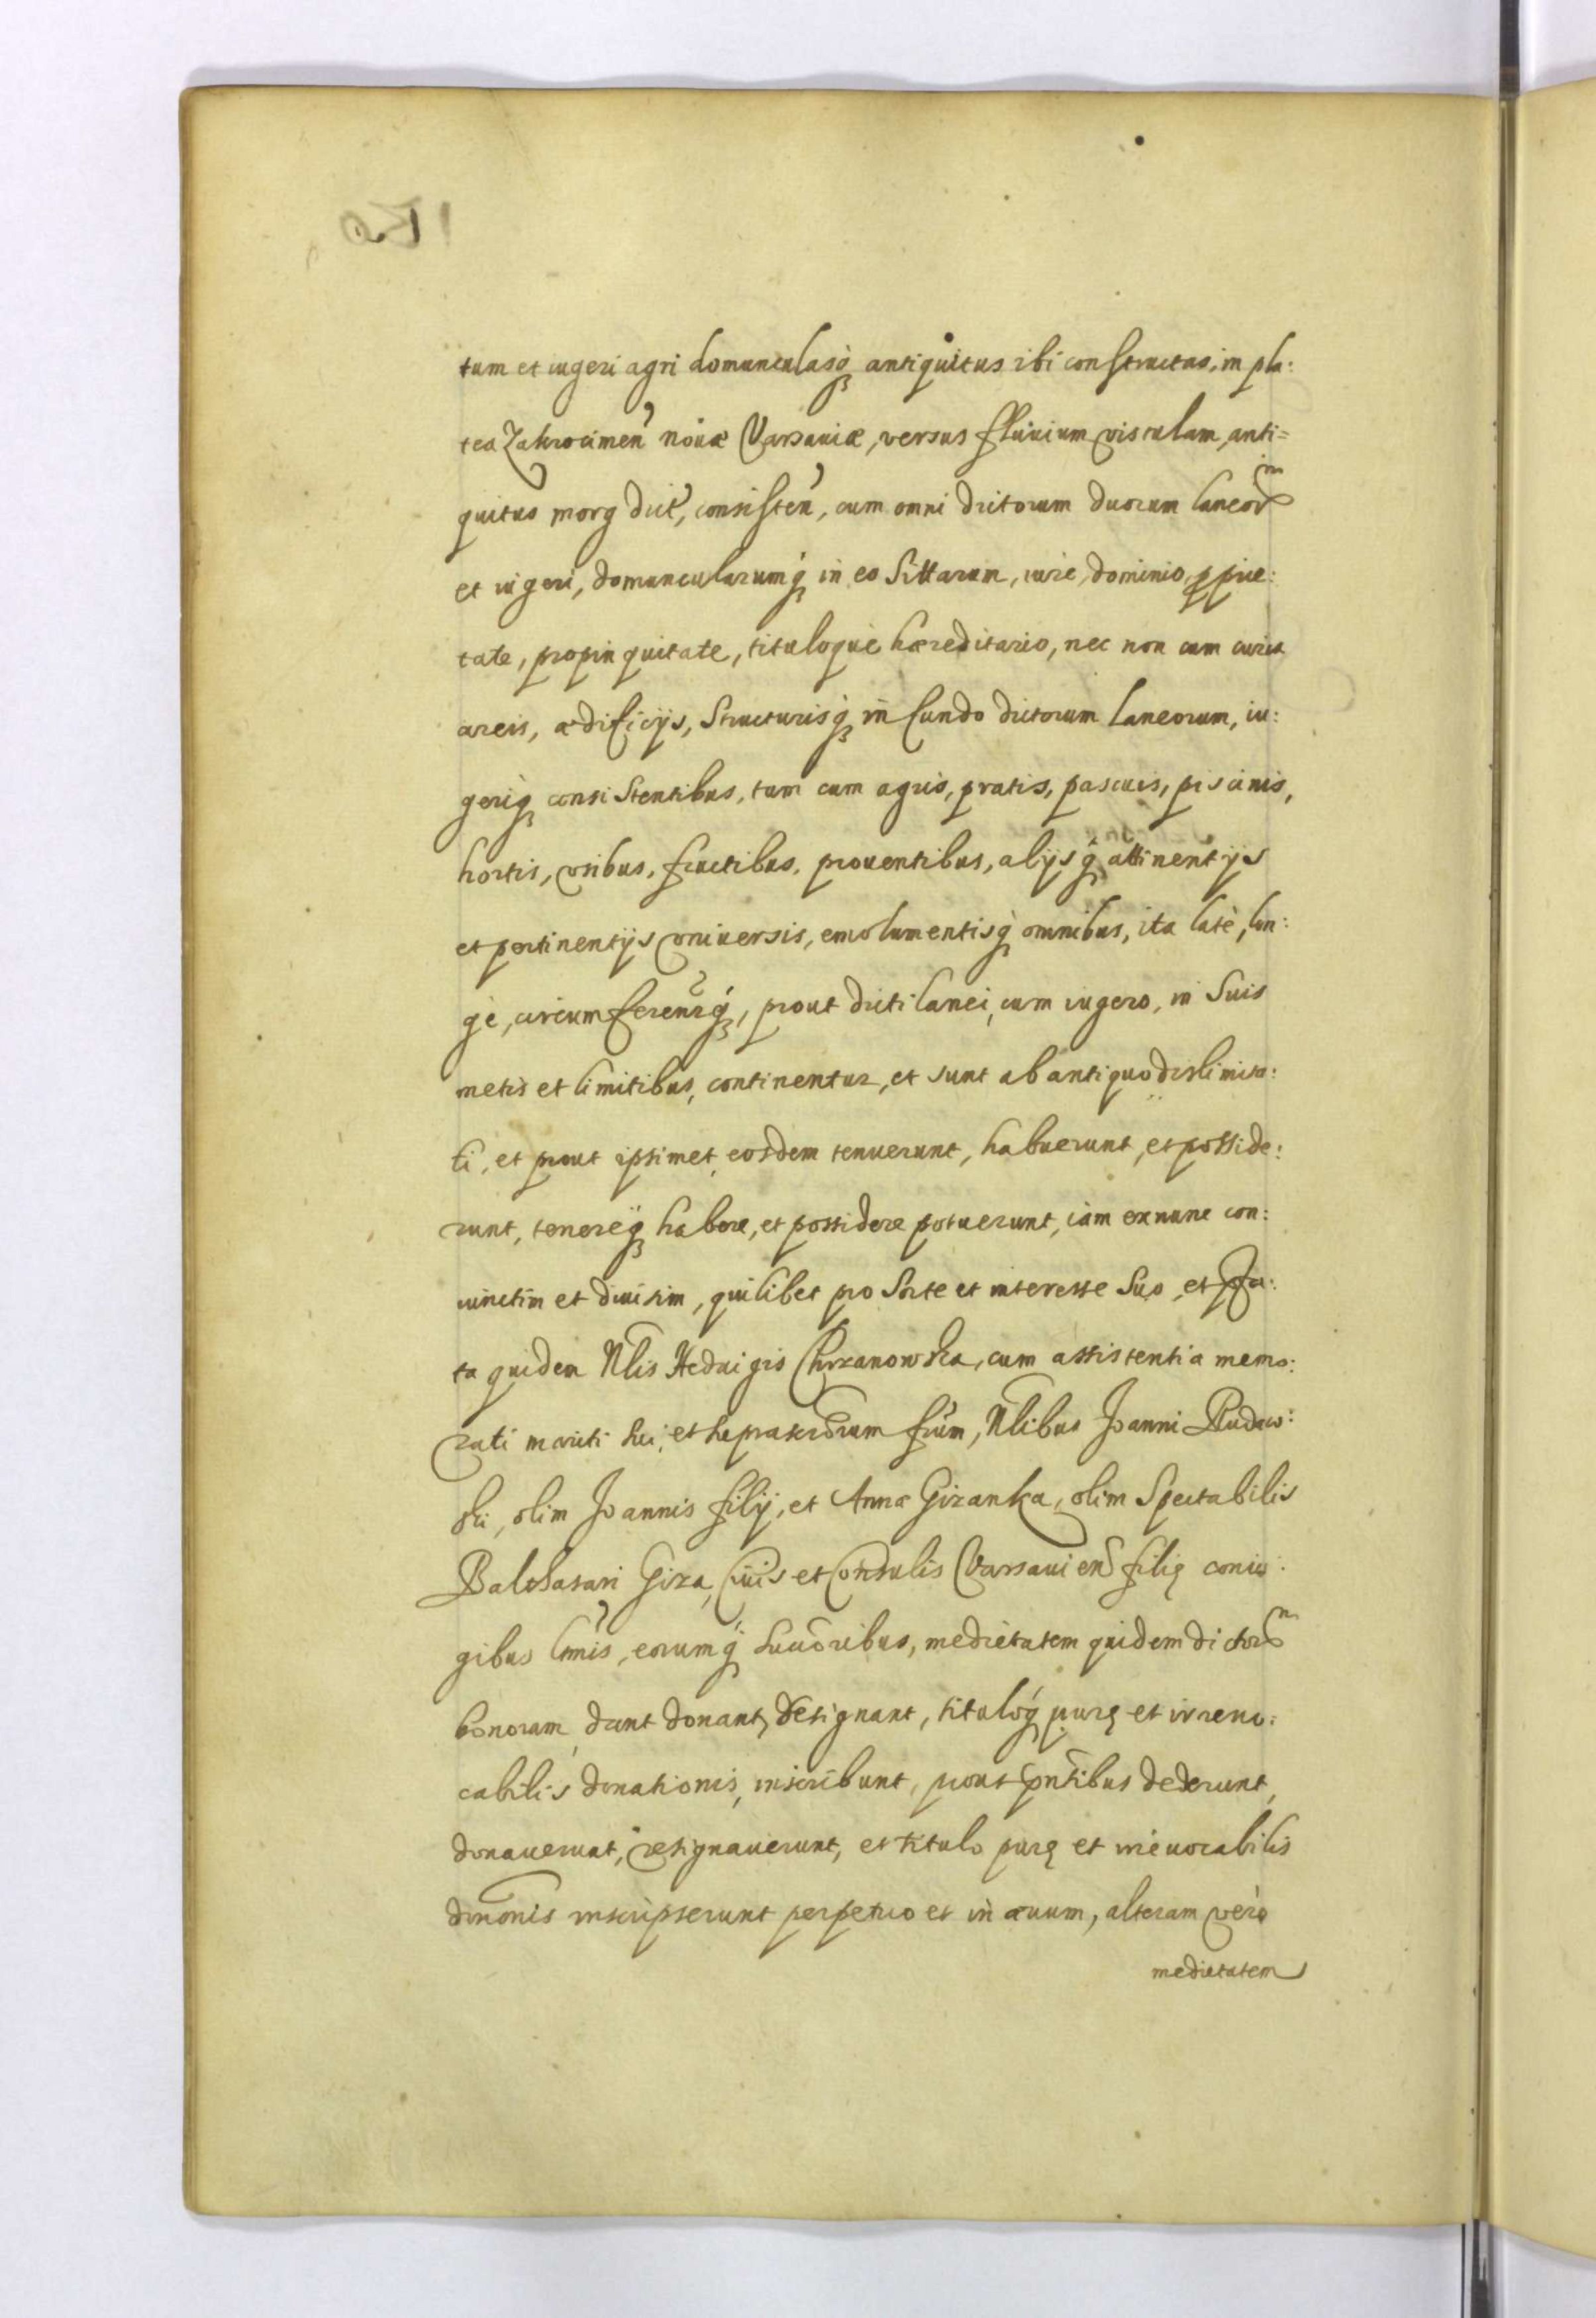 tum et iugeri agri domunculasq́ꝫ antiquitus ibi constructas, in pla:
tea Zakrocimen̉ nouæ Varsauiæ, versus fluuium vistulam, anti=
quitus morg dict̉, consisten̉, cum omni dictorum duorum laneorͫ
et iugeri, domuncularumq́ꝫ in eo sittarum, iure, dominio, ꝓprie:
tate, propinquitate, tituloque hæreditario, nec non cum curia
areis, ædificijs, structurisq́ꝫ in fundo dictorum laneorum, iu:
geriq́ꝫ consistentibus, tum cum agris, pratis, pascuis, piscinis,
hortis, vsibus, fructibus, prouentibus, alijsq́ꝫ attinentijs
et pertinentijs vniuersis, emolumentisq́ꝫ omnibus, ita latè, lon:
gè, circumferen̄rq́ꝫ, prout dicti lanei, cum iugero, in suis
metis et limitibus, continentur, et sunt ab antiquo dislimita:
ti, et prout ipsimet, eosdem tenuerunt, habuerunt, et posside:
runt, tenereq́ꝫ habere, et possidere potuerunt, iam exnunc con:
iunctim et diuisim, quilibet pro sorte et interesse suo, et
ta quidem Nl̄is Heduigis Chrzanowska, cum assistentia memo:
rati mariti sui, et frūm, Nl̄ibus Joanni Rudaw:
ski, olim Joannis filij, et Annæ Gizanka, olim Spectabilis
Balthasari Giza, Ciuis et Consulis Varsauien̄ filię coniu:
gibus lm̉is, eorumq́ꝫ succ̄oribus, medietatem quidem dictorͫ
bonorum dant donant, resignant, tituloq́ꝫ purę et irreuo:
cabilis donationis, inscribunt, prout pn̄tibus dederunt,
donauerunt, resignauerunt, et titulo purę et irreuocabilis
don̄onis inscripserunt perpetuo et in æuum, alteram verò
medietatem